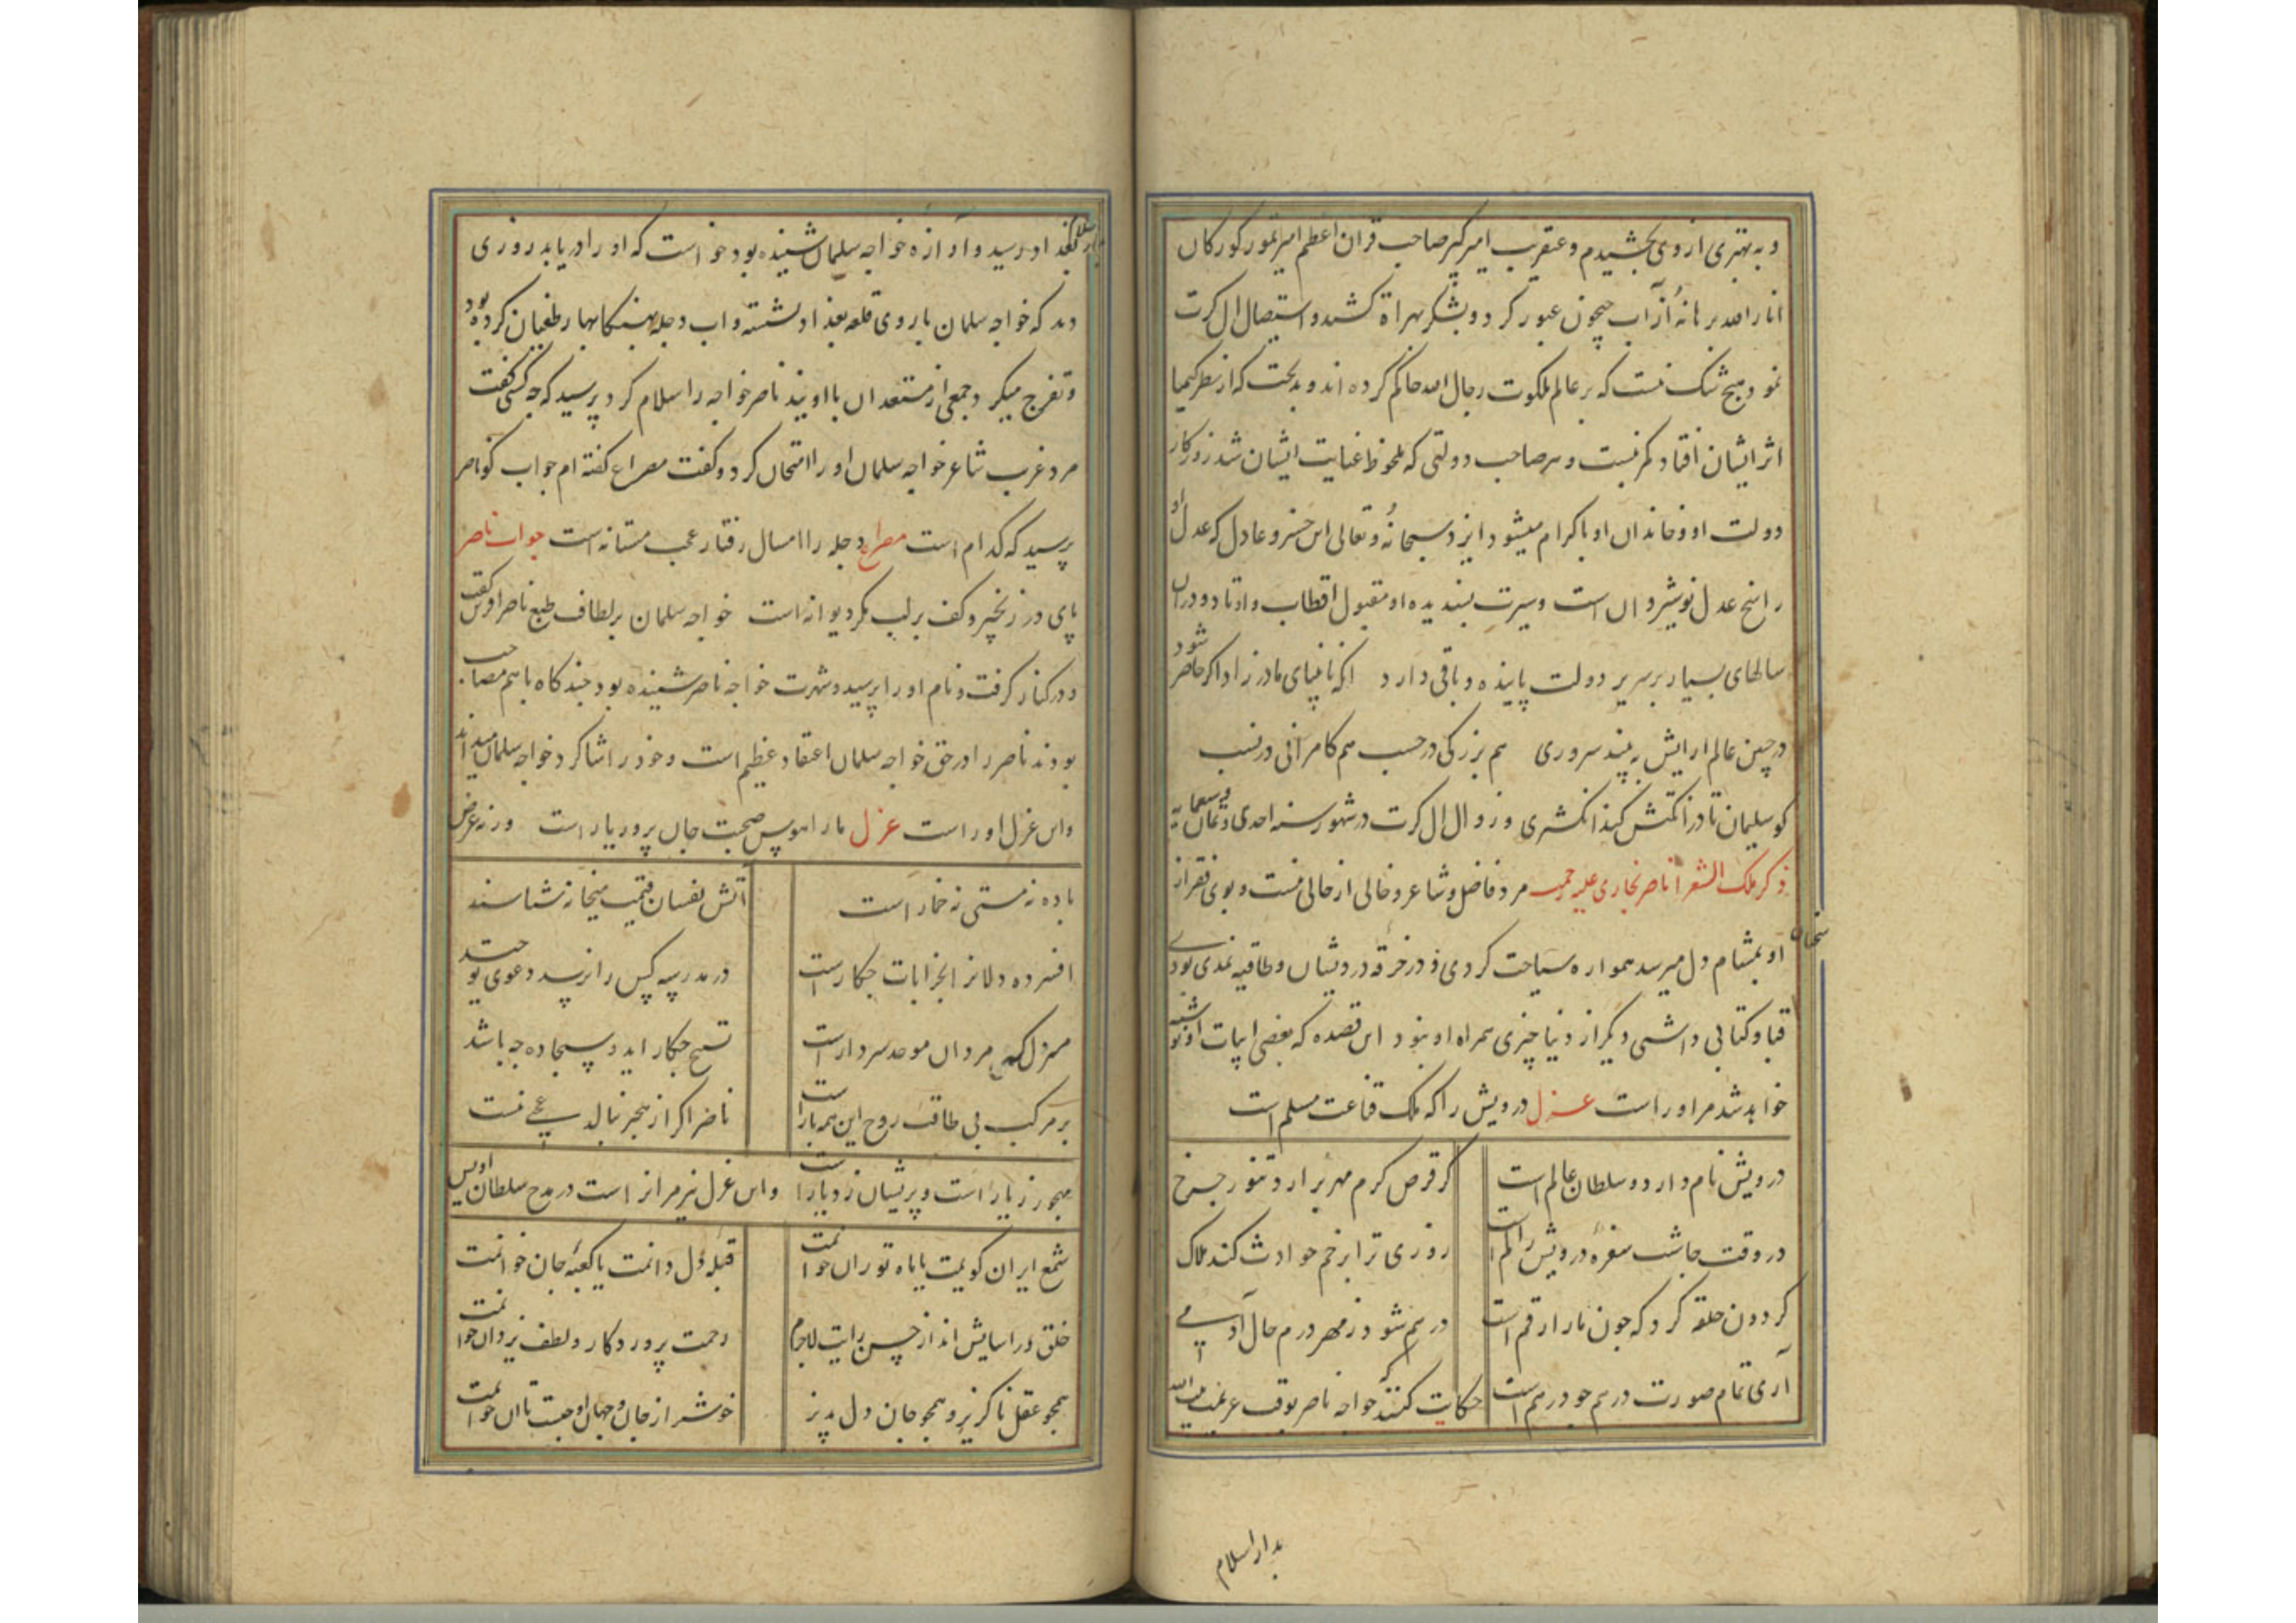 و به بهتری از وی بخشیدم و عنقریب امیر کبیر صاحب قران اعظم امیر تیمور کورکان
انار الله برهانهٔ از آب جیحون عبور کرد و لشکر بهراة کشید و استیصال ال کرت
نمود و هیچ شک نیست که بر عالم ملکوت رجال الله حاکم کرده اند و بدبخت که از نظر کیمیا
اثر ایشان افتاد کم نیست و هر صاحب دولتی که ملحوظ عنایت ایشان شد روزکار
دولت او و خاندان او با کرام میشود ایزد سبحانهٔ و تعالی این خسرو عادل که عدل او
راسخ عدل نوشیروان است و سیرت پسندیده او مقبول اقطاب و اوتاد دوران
سالهای بسیار بر سریر دولت پاینده و باقی دارد انکه نابینای مادرزاد اکر حاضر شود
در جبین عالم ارایش به بیند سروری هم بزرکی در حسب هم کامرانی در نسب
کو سلیمان تا در انکشتش کند انکشتری و زوال ال کرت در شهور سنه احدی و ثمانین و سبعمایه
ذکر ملک الشعرا ناصر بخاری علیه رحمه مرد فاضل و شاعر و خالی از حالی نیست و بوی فقر از
سخنان
او بمشام دل میرسد همواره سیاحت کردی و در خرقه درویشان و طاقیه نمدی بودی
قبا و کتابی داشتی و دیکر از دنیا چیزی همراه او نبود این قصده که بعضی ابیات او نوشته
خواهد شد مر او راست غزل درویش را که ملک قناعت مسلم است
درویش نام دارد و سلطان عالم است کر قرص کرم مهر برارد تنور چرخ
در وقت چاشت سفرهٔ درویش را کم است روزی ترا بزخم حوادث کند هلاک
کردون حلقه کرد که چون مار ارقم است در هم شو ز مهر درم حال آدمی
آری تمام صورت درهم چو درهم است حکایت کنند که خواجه ناصر بوقت عزیمت بیت الله
بدار السلام
بدار السلام بغداد رسید و آوازه خواجه سلمان شنیده بود خواست که او را دریابد روزی
دید که خواجه سلمان باروی قلعه بغداد نشسته و اب دجله بهنکام بهار طغیان کرده بود
و تفرج میکرد و جمعی از مستعدان با او بیند ناصر خواجه را سلام کرد پرسید که چه کسی کفت
مرد غریب شاعر خواجه سلمان او را امتحان کرد و کفت مصراع کفته ام جواب کو ناصر
پرسید که کدام است مصراع دجله را امسال رفتار عجب مستانه است جواب ناصر
پای در زنجیر و کف بر لب مکر دیوانه است خواجه سلمان بر لطاف طبع ناصر آفرین کفت
و در کنار کرفت و نام او را پرسید و شهرت خواجه ناصر شنیده بود چند کاه با هم مصاحب
بودند ناصر را در حق خواجه سلمان اعتقاد عظیم است و خود را شاکرد خواجه سلمان میداند
و این غزل او راست غزل ما را هوس صحبت جان پرور یار است ورنه غرض
باده نه مستی نه خمار است آتش نفسان قیمت میخانه شناسند
افسرده دلانرا بخرابات چکار است در مدرسه کس را نرسد دعوی توحید
منزلکه مردان موحد سر دار است تسبیح چکار اید و سجاده چه باشد
بر مرکب بی طاقت روح این همه بار است ناصر اکر از هجر بنالد عجبی نیست
مهجور ز یار است و پریشان ز دیار است و این غزل نیز مر انرا است در مدح سلطان اویس
شمع ایران کویمت یا ماه توران خوانمت قبله دل دانمت یا کعبهٔ جان خوانمت
خلق در اسایش اند از حسن رایت لاجرم رحمت پروردکار و لطف یزدان خوانمت
همچو عقل ناکزیر و همچو جان دل پذیر خوشتر از جان و جهان او چیست تا ان خوانمت